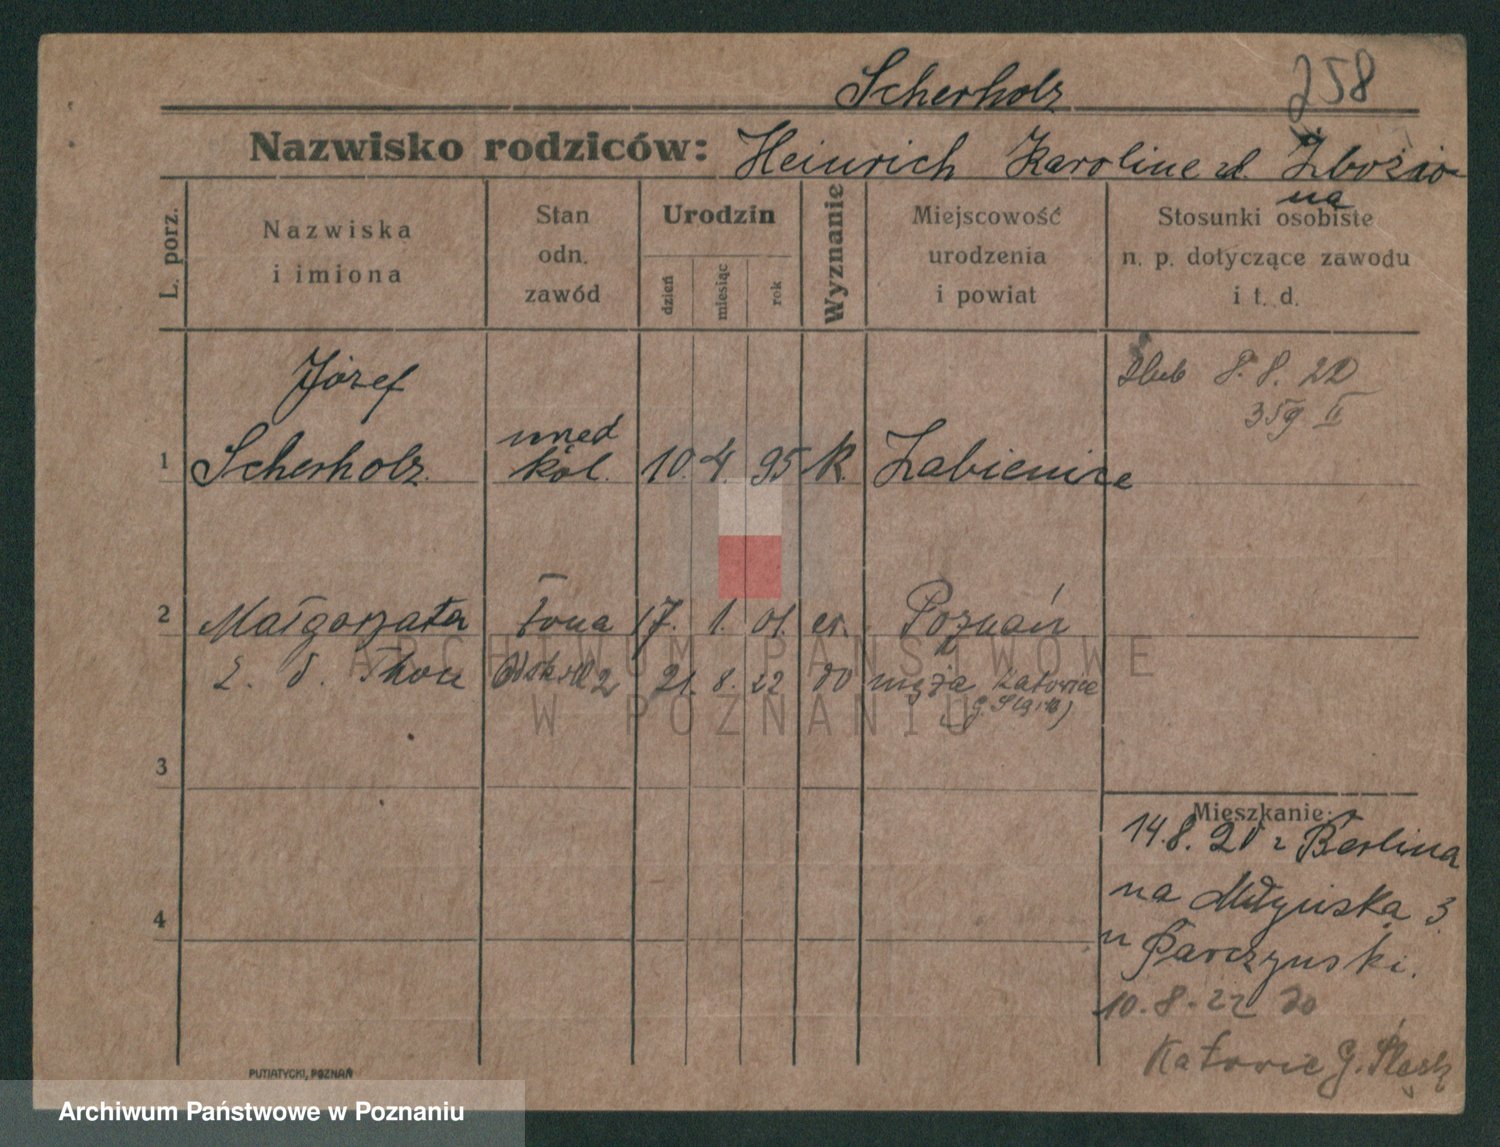 Scherholz 258
Nazwisko rodziców: Heinrich Karoline zd. Zbozio
na
L. porz.
Nazwiska
i imiona
Stan
odn.
zawód
Urodzin
dzień
miesiąc
rok
Wyznanie
Miejscowość
urodzenia
i powiat
Stosunki osobiste
n. p. dotyczące zawodu
i t. d.
Józef
1 Scherholz urzęd kol. 10. 4. 95 K. Żabienice
Ślub 8. 8. 22
359 II
2 Małgorzata żona 17. 1. 01. ew. Poznań
z. d. Thon 21. 8. 22 do męża Katowice
3
4
Mieszkanie:
14.8.20 z Berlina
na Młyńska 3
u Parczynski.
10.8.22 do
Katowic G. Śląsk
PUTIATYCKI, POZNAŃ
ARCHIWUM PAŃSTWOWE
W POZNANIU
Archiwum Państwowe w Poznaniu